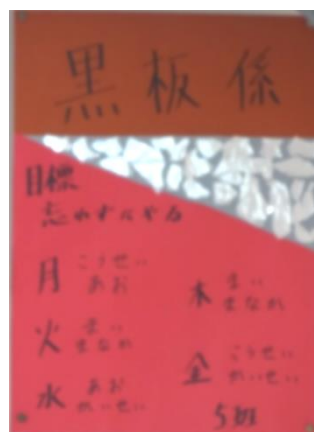 黒板係
目標
忘れずにやる
月 こうせい
あお
火 まい
まなか
水 あお
めいせい
木 まい
まなか
金 こうせい
めいせい
5班